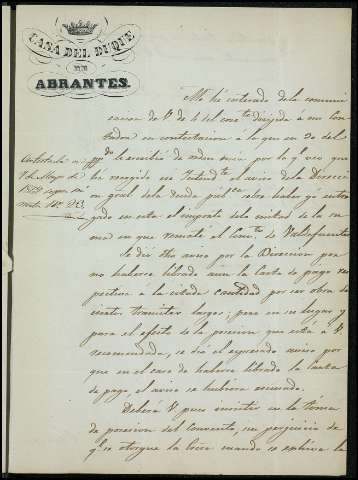 CASA DEL DUQUE
DE
ABRANTES.
Me he enterado de la comuni
cacion de V. de 4 del corrte. dirijida á mi Con
tador en contestacion á la que en 20 del
le escribió de orden mia por la q. veo que
ha recogido ese Intendte. el aviso de la Direccion
gral. de la deuda pubca. sobre haber yo entre
gado en esta el importe de la mitad de la su
ma en que remató el Convto. de Valdefuentes
Contestada en
7 de Mayo de
Se dió dho aviso por la Direccion por
no haberse librado aun la Carta de pago res
pectiva á la citada cantidad por ser obra de
ciertos tramites largos; pero en su lugar y
para el efecto de la posesion que está á V.
recomendada, se dio el espresado aviso por
que en el caso de haberse librado la carta
de pago el aviso se hubiera escusado.
Deberá V. pues insistir en la toma
de posesion del Convento, sin perjuicio de
q. se otorgue la Escra. cuando se exhiva la